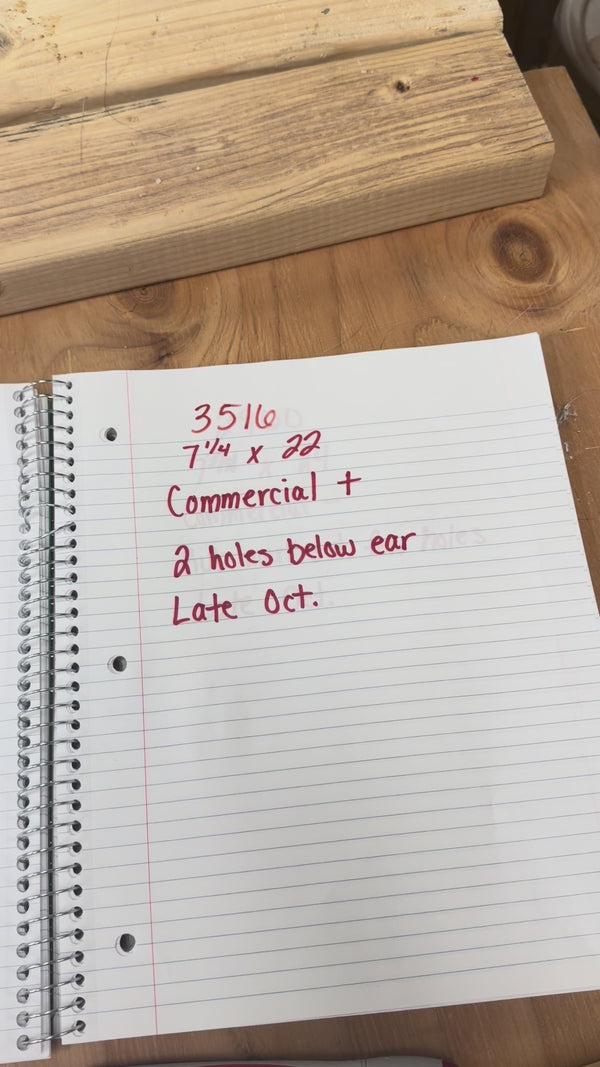 3516
7 1/4 x 22
Commercial +
2 holes below ear
Late Oct.